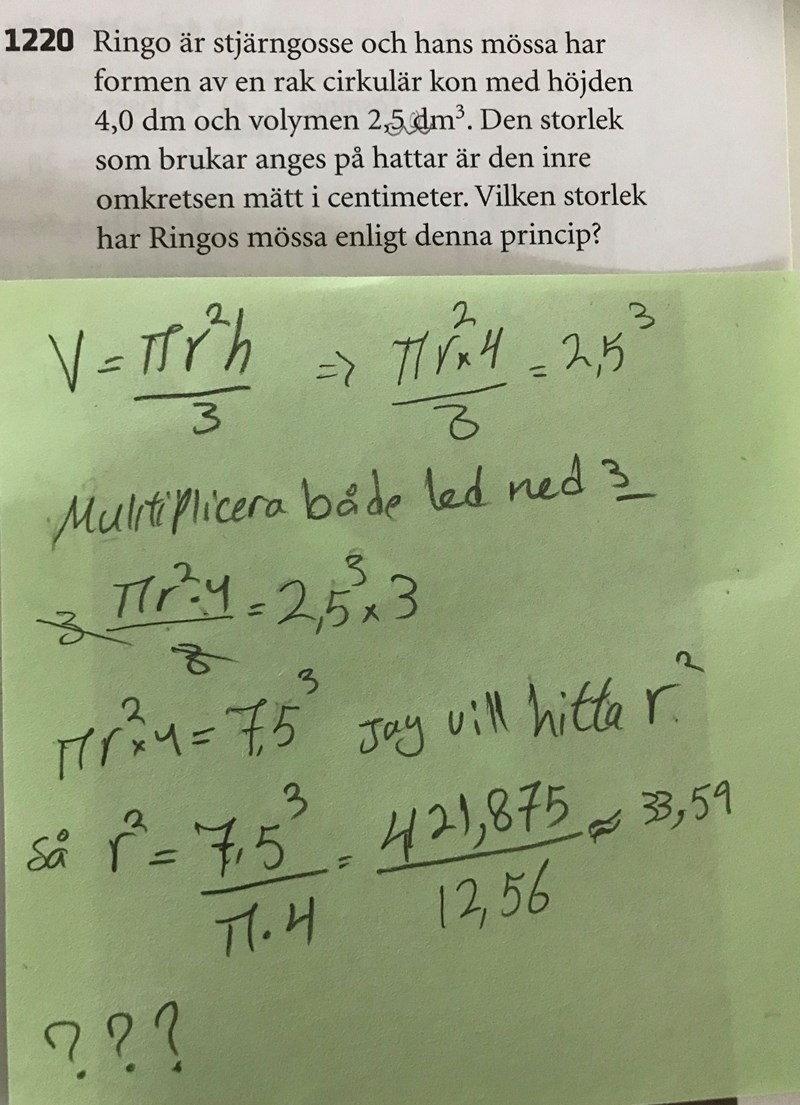 1220 Ringo är stjärngosse och hans mössa har
formen av en rak cirkulär kon med höjden
4,0 dm och volymen 2,5 dm³. Den storlek
som brukar anges på hattar är den inre
omkretsen mätt i centimeter. Vilken storlek
har Ringos mössa enligt denna princip?
V = πr²h / 3 => πr² × 4 / 3 = 2,5³
Mulitiplicera både led ned 3
3 πr² · 4 / 3 = 2,5³ × 3
πr² × 4 = 7,5³ Jag vill hitta r²
så r² = 7,5³ / π · 4 = 421,875 / 12,56 ≈ 33,59
???